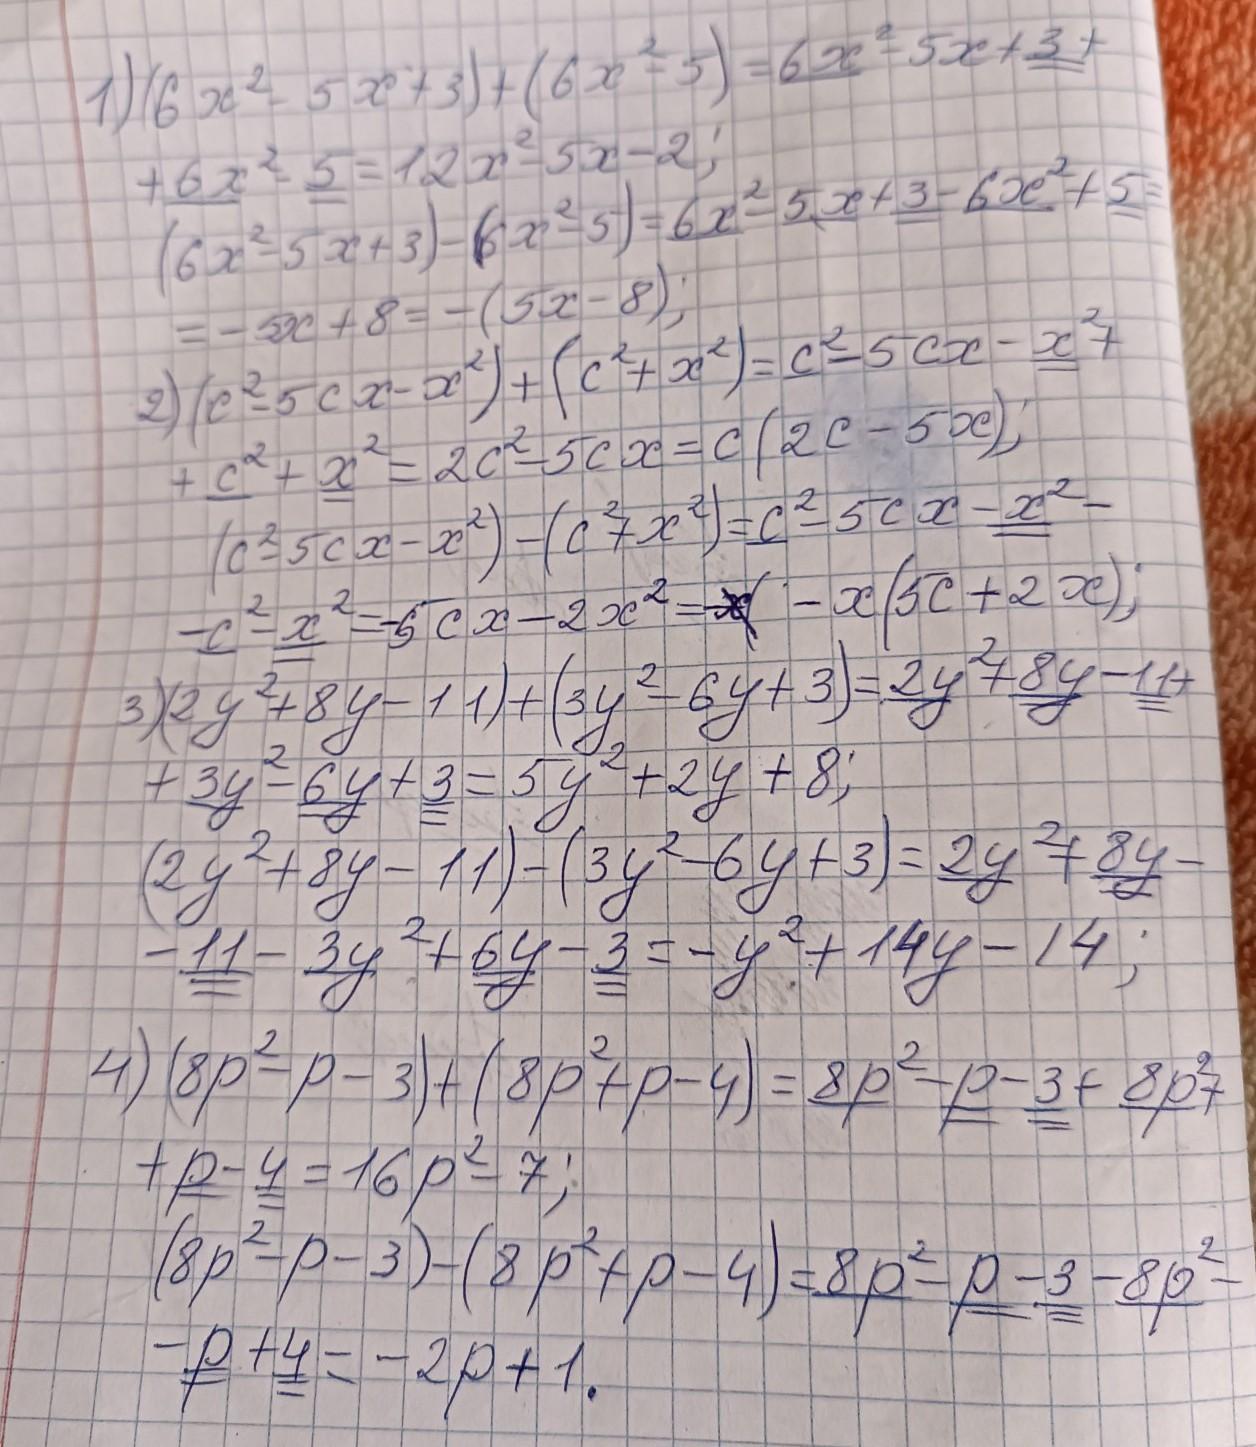 1) (6x² - 5x + 3) + (6x² - 5) = 6x² - 5x + 3 +
+ 6x² - 5 = 12x² - 5x - 2;
(6x² - 5x + 3) - (6x² - 5) = 6x² - 5x + 3 - 6x² + 5 =
= - 5x + 8 = - (5x - 8);
2) (c² - 5cx - x²) + (c² + x²) = c² - 5cx - x² +
+ c² + x² = 2c² - 5cx = c (2c - 5x);
(c² - 5cx - x²) - (c² + x²) = c² - 5cx - x² -
- c² - x² = -5cx - 2x² = - x (5c + 2x);
3) (2y² + 8y - 11) + (3y² - 6y + 3) = 2y² + 8y - 11 +
+ 3y² - 6y + 3 = 5y² + 2y + 8;
(2y² + 8y - 11) - (3y² - 6y + 3) = 2y² + 8y -
- 11 - 3y² + 6y - 3 = - y² + 14y - 14;
4) (8p² - p - 3) + (8p² + p - 4) = 8p² - p - 3 + 8p² +
+ p - 4 = 16p² - 7;
(8p² - p - 3) - (8p² + p - 4) = 8p² - p - 3 - 8p² -
- p + 4 = - 2p + 1.